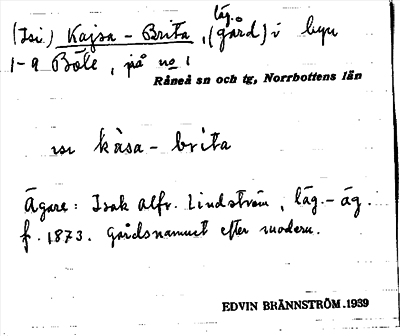 (Isi.) Kajsa-Brita, (läg. gård) i byn
1-9 Böle, på no 1
Råneå sn och tg, Norrbottens län
isi kàsa-brita
Ägare: Isak Alfr. Lindström, läg.-äg.
f. 1873. Gårdsnamnet efter modern.
EDVIN BRÄNNSTRÖM.1939